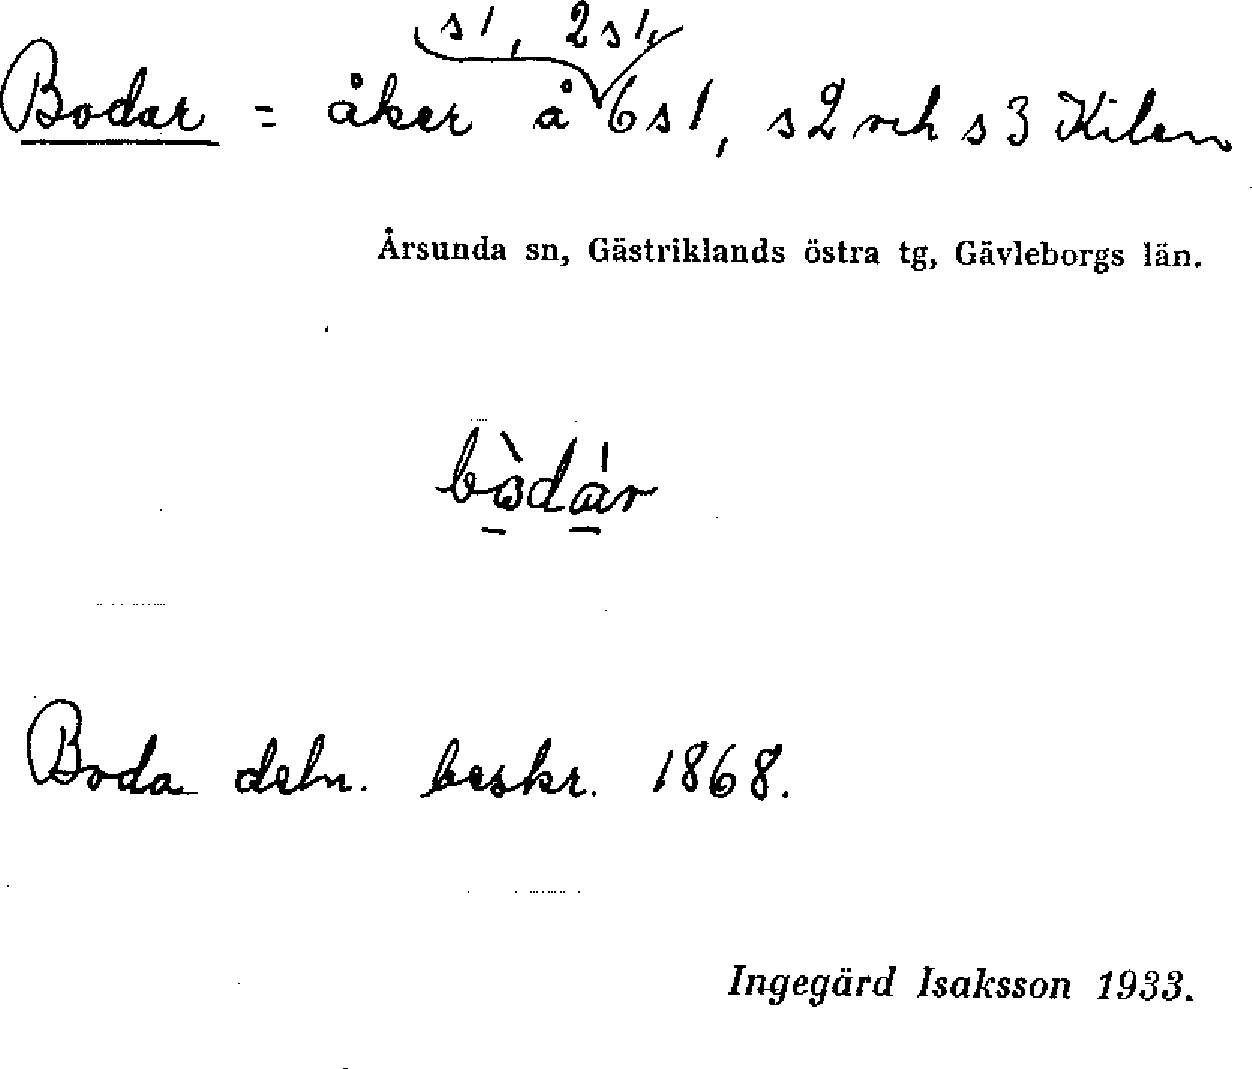 s1, 2s1,
Bodar = åker å 6s1, s2 och s3 Kilen
Årsunda sn, Gästriklands östra tg, Gävleborgs län.
bòdár
Boda deln. beskr. 1868.
Ingegärd Isaksson 1933.